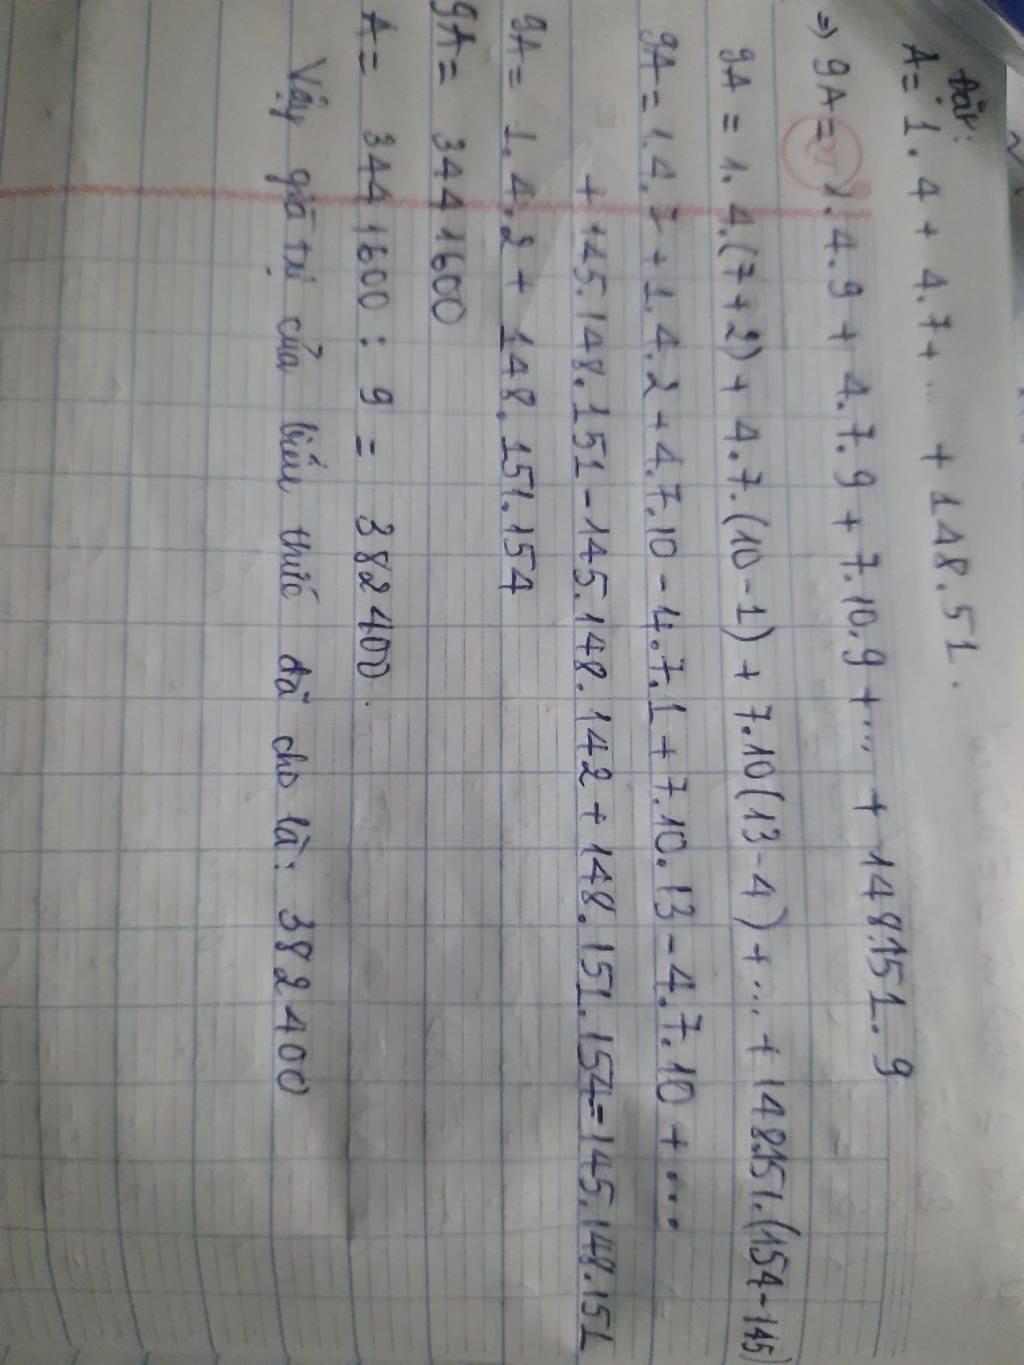 Đặt:
A = 1.4 + 4.7 + ... + 148.51.
=> 9A = 1.4.9 + 4.7.9 + 7.10.9 + ... + 148.151.9
9A = 1.4.(7+2) + 4.7.(10-1) + 7.10(13-4) + ... + 148.151.(154-145)
9A = 1.4.7 + 1.4.2 + 4.7.10 - 4.7.1 + 7.10.13 - 4.7.10 + ...
+ 145.148.151 - 145.148.142 + 148.151.154 = 145.148.151
9A = 1.4.2 + 148.151.154
9A = 3441600
A = 3441600 : 9 = 382400.
Vậy giá trị của biểu thức đã cho là: 382400